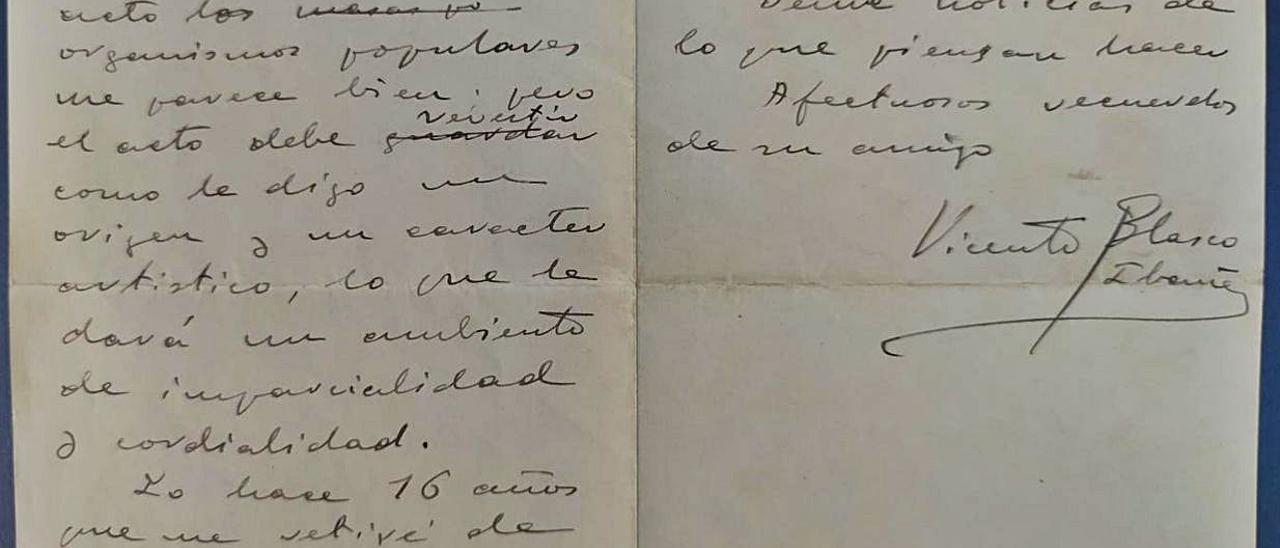 acto los
organismos populares
me parece bien; pero
revestir
el acto debe guardar
como le digo un
origen y un caracter
artistico, lo que le
dará un ambiente
de imparcialidad
y cordialidad.
Yo hace 16 años
que me retiré de
Deme noticias de
lo que piensan hacer
Afectuosos recuerdos
de su amigo
Vicente Blasco
Ibañez